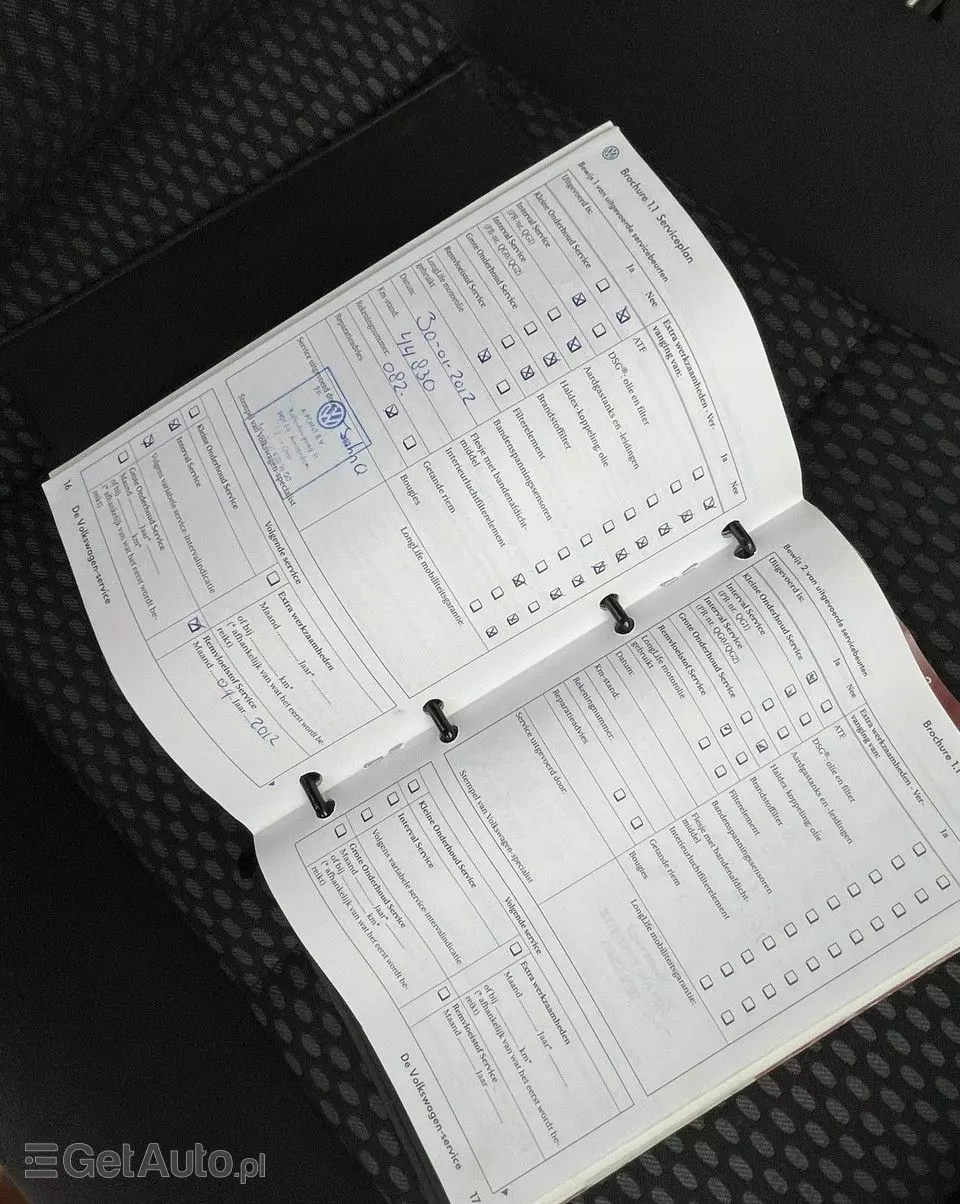 Brochure 1.1 Serviceplan
Bewijs 1 van uitgevoerde servicebeurten
Uitgevoerd is:
Ja
Nee
Kleine Onderhoud Service
Interval Service
(PR-nr. QG1)
Interval Service
(PR-nr. QG0/QG2)
Grote Onderhoud Service
Remvloeistof Service
LongLife motorolie
gebruikt
Datum:
30-01-2012
Km-stand:
44830
Rekeningnummer:
082.
Reparatieadvies
Service uitgevoerd door:
Stempel van Volkswagen-specialist
Extra werkzaamheden - Ver-
vanging van:
Ja
Nee
ATF
DSG®: olie en filter
Aardgastanks en -leidingen
Haldex-koppeling: olie
Brandstoffilter
Filterelement
Bandenspanningssensoren
Flesje met bandenafdicht-
middel
Interieurluchtfilterelement
Getande riem
Bougies
LongLife mobiliteitsgarantie:
Volgende service
Kleine Onderhoud Service
Interval Service
Volgens variabele service-intervalindicatie
Grote Onderhoud Service
Maand ........ Jaar*
of bij ........ km*
(* afhankelijk van wat het eerst wordt be-
reikt)
Extra werkzaamheden
Maand ........ Jaar* ........
of bij ........ km*
(* afhankelijk van wat het eerst wordt be-
reikt)
Remvloeistof Service
Maand 04 Jaar 2012
16
De Volkswagen-service
Brochure 1.1
Bewijs 2 van uitgevoerde servicebeurten
Uitgevoerd is:
Ja
Nee
Kleine Onderhoud Service
Interval Service
(PR-nr. QG1)
Interval Service
(PR-nr. QG0/QG2)
Grote Onderhoud Service
Remvloeistof Service
LongLife motorolie
gebruikt
Datum:
Km-stand:
Rekeningnummer:
Reparatieadvies
Service uitgevoerd door:
Stempel van Volkswagen-specialist
Extra werkzaamheden - Ver-
vanging van:
Ja
ATF
DSG®: olie en filter
Aardgastanks en -leidingen
Haldex-koppeling: olie
Brandstoffilter
Filterelement
Bandenspanningssensoren
Flesje met bandenafdicht-
middel
Interieurluchtfilterelement
Getande riem
Bougies
LongLife mobiliteitsgarantie:
Volgende service
Kleine Onderhoud Service
Interval Service
Volgens variabele service-intervalindicatie
Grote Onderhoud Service
Maand ........ Jaar* ........
of bij ........ km*
(* afhankelijk van wat het eerst wordt be-
reikt)
Extra werkzaamheden
Maand ........ Jaar* ........
of bij ........ km*
(* afhankelijk van wat het eerst wordt be-
reikt)
Remvloeistof Service
Maand ........ Jaar ........
De Volkswagen-service
17
GetAuto.pl